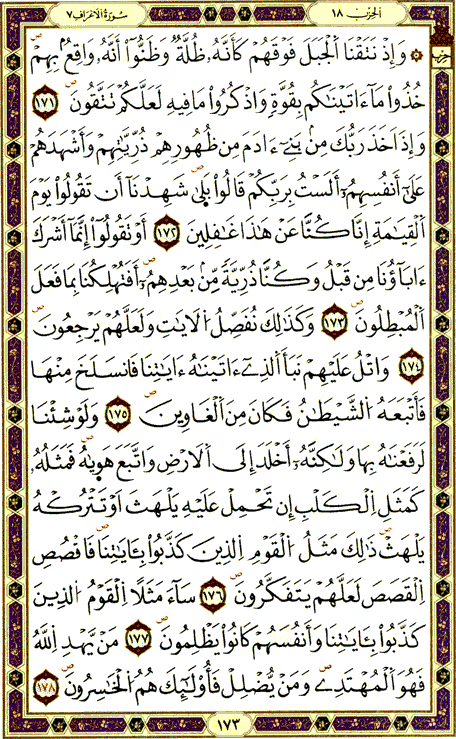 الحزب ١٨ سورة الاعراف ٧
حزب
۞ وَإِذ نَّتَقْنَا اَ۬لْجَبَلَ فَوْقَهُمْ كَأَنَّهُۥ ظُلَّةٞ وَظَنُّوٓاْ أَنَّهُۥ وَاقِعُۢ بِهِمْ ص
خُذُواْ مَآ ءَاتَيْنَٰكُم بِقُوَّةٖ وَاذْكُرُواْ مَا فِيهِ لَعَلَّكُمْ تَتَّقُونَ ص ١٧١
وَإِذَ اَخَذَ رَبُّكَ مِنۢ بَنِےٓ ءَادَمَ مِن ظُهُورِهِمْ ذُرِّيَّٰتِهِمْ وَأَشْهَدَهُمْ
عَلَىٰٓ أَنفُسِهِمُۥٓ أَلَسْتُ بِرَبِّكُمْ قَالُواْ بَلَىٰ ص شَهِدْنَآ أَن تَقُولُواْ يَوْمَ
اَ۬لْقِيَٰمَةِ إِنَّا كُنَّا عَنْ هَٰذَا غَٰفِلِينَ ١٧٢ أَوْ تَقُولُوٓاْ إِنَّمَآ أَشْرَكَ
ءَابَآؤُنَا مِن قَبْلُ وَكُنَّا ذُرِّيَّةٗ مِّنۢ بَعْدِهِمُۥٓ ص أَفَتُهْلِكُنَا بِمَا فَعَلَ
اَ۬لْمُبْطِلُونَ ص ١٧٣ وَكَذَٰلِكَ نُفَصِّلُ اُ۬لَايَٰتِ وَلَعَلَّهُمْ يَرْجِعُونَ ص
١٧٤ وَاتْلُ عَلَيْهِمْ نَبَأَ اَ۬لذِےٓ ءَاتَيْنَٰهُ ءَايَٰتِنَا فَانسَلَخَ مِنْهَا
فَأَتْبَعَهُ اُ۬لشَّيْطَٰنُ فَكَانَ مِنَ اَ۬لْغَاوِينَ ص ١٧٥ وَلَوْ شِئْنَا
لَرَفَعْنَٰهُ بِهَا وَلَٰكِنَّهُۥٓ أَخْلَدَ إِلَى اَ۬لَارْضِ وَاتَّبَعَ هَوَيٰهُ ص فَمَثَلُهُۥ
كَمَثَلِ اِ۬لْكَلْبِ إِن تَحْمِلْ عَلَيْهِ يَلْهَثَ اَوْ تَتْرُكْهُ
يَلْهَث ص ذَّٰلِكَ مَثَلُ اُ۬لْقَوْمِ اِ۬لذِينَ كَذَّبُواْ بِـَٔايَٰتِنَا ص فَاقْصُصِ
اِ۬لْقَصَصَ لَعَلَّهُمْ يَتَفَكَّرُونَ ص ١٧٦ سَآءَ مَثَلًا اِ۬لْقَوْمُ اُ۬لذِينَ
كَذَّبُواْ بِـَٔايَٰتِنَا وَأَنفُسَهُمْ كَانُواْ يَظْلِمُونَ ص ١٧٧ مَنْ يَّهْدِ اِ۬للَّهُ
فَهُوَ اَ۬لْمُهْتَدِے ص وَمَنْ يُّضْلِلْ فَأُوْلَٰٓئِكَ هُمُ اُ۬لْخَٰسِرُونَ ص ١٧٨
١٧٣